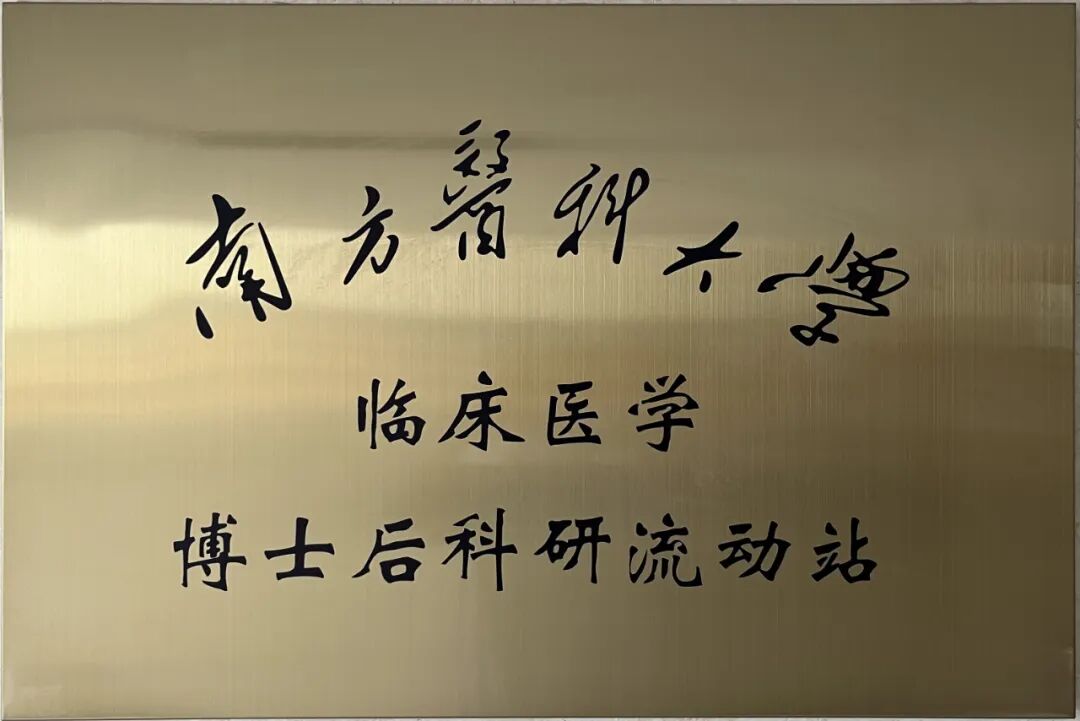 南方醫科大學
临床医学
博士后科研流动站